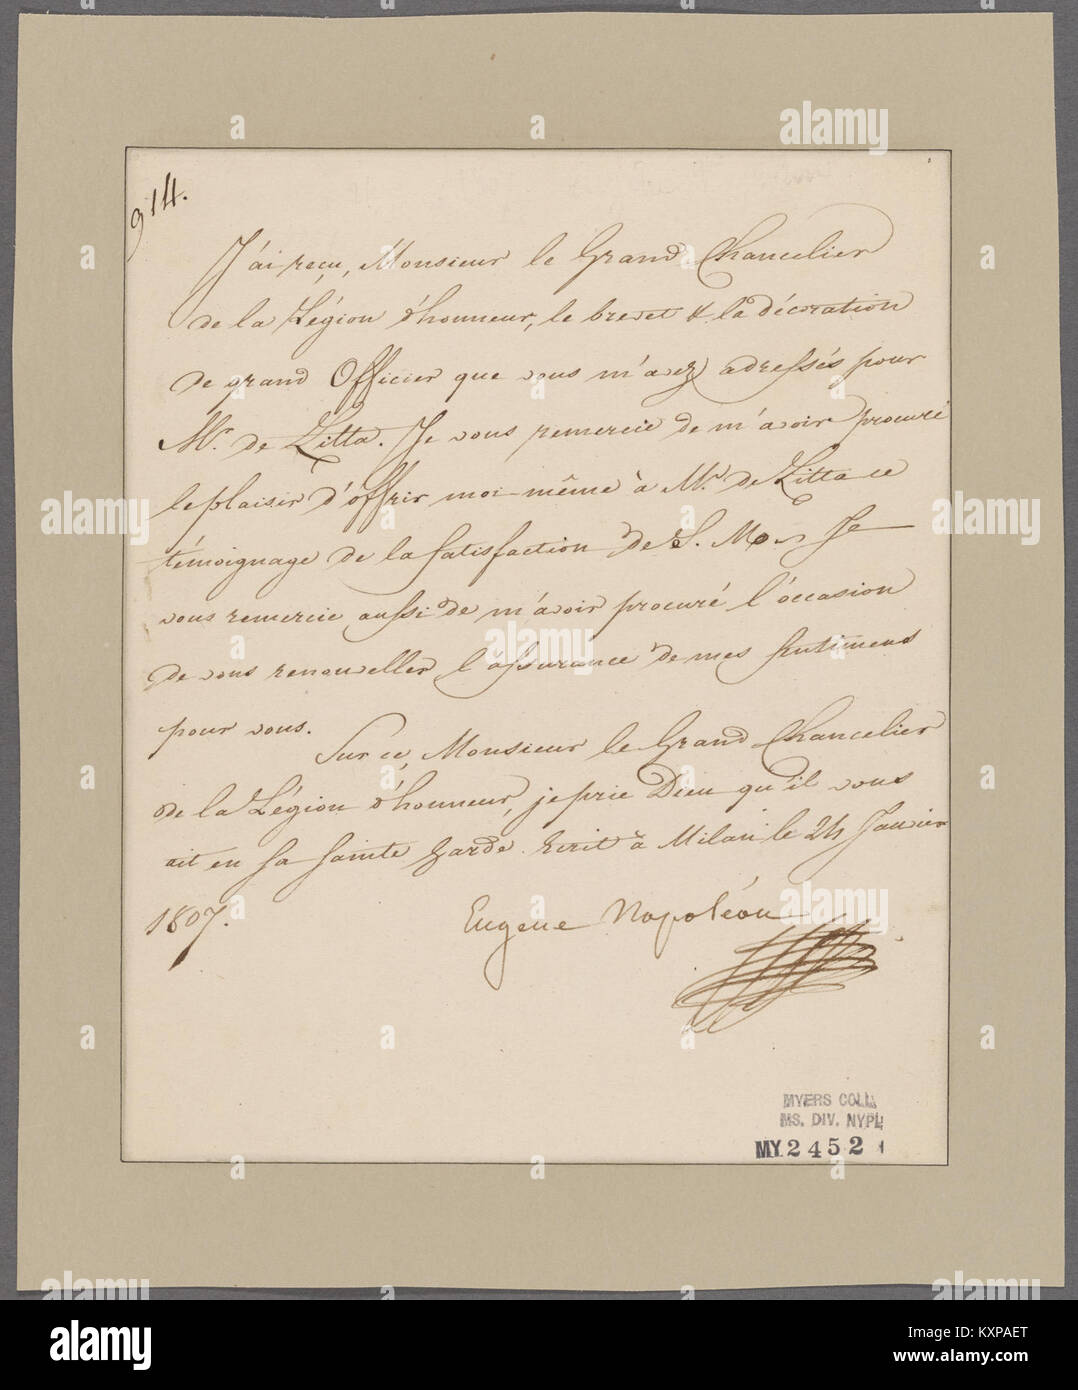 914.
J'ai reçu, Monsieur le Grand Chancelier
de la Légion d'honneur, le brevet & la décoration
de grand Officier que vous m'avez adressés pour
Mr. de Litta. Je vous remercie de m'avoir procuré
le plaisir d'offrir moi-même à Mr. de Litta ce
témoignage de la satisfaction de S. M. Je
vous remercie aussi de m'avoir procuré l'occasion
de vous renouveller l'assurance de mes sentimens
pour vous.
Sur ce, Monsieur le Grand Chancelier
de la Légion d'honneur, je prie Dieu qu'il vous
ait en sa sainte garde. Ecrit à Milan le 24 Janvier
1807.
Eugene Napoléon
MYERS COLL.
MS. DIV. NYPL
MY. 2452
alamy
a
alamy
Image ID: KXPAET
www.alamy.com